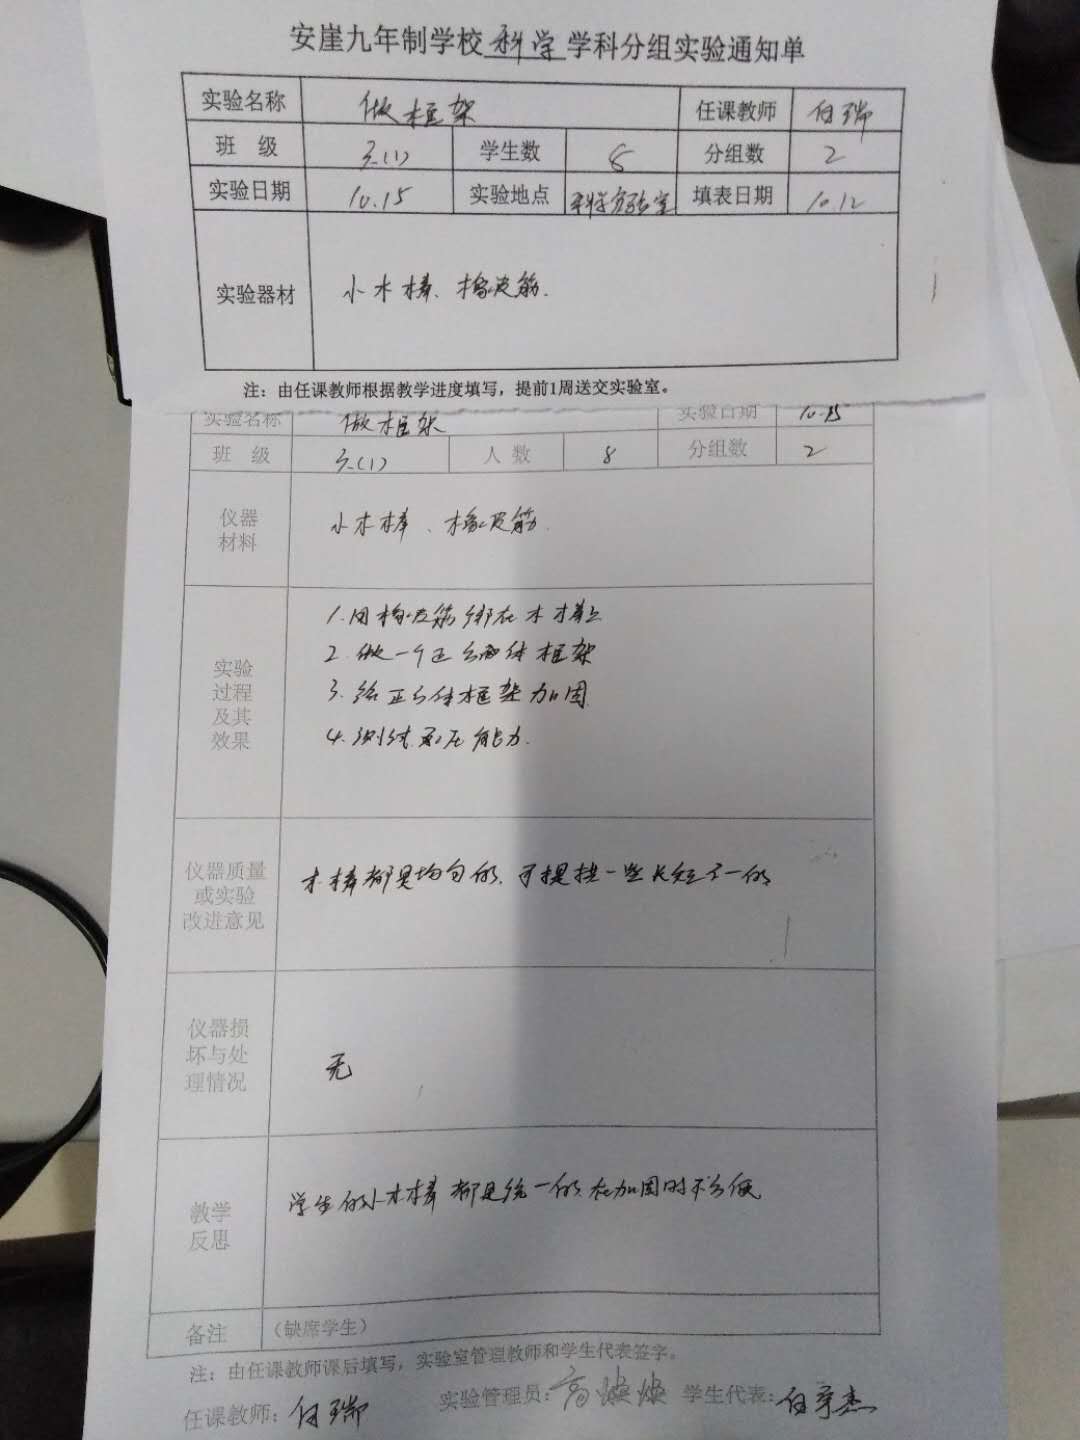 安崖九年制学校科学学科分组实验通知单
实验名称 做框架 任课教师 任瑞
班 级 三(1) 学生数 8 分组数 2
实验日期 10.15 实验地点 科学实验室 填表日期 10.12
实验器材 小木棒、橡皮筋.
注：由任课教师根据教学进度填写，提前1周送交实验室。
实验名称 做框架 实验日期 10.15
班 级 三(1) 人数 8 分组数 2
仪器
材料
小木棒、橡皮筋.
实验
过程
及其
效果
1.用橡皮筋绑在木棒上
2.做一个正方体框架
3.给正方体框架加固
4.测试承压能力.
仪器质量
或实验
改进意见
木棒都是均匀的、可提供一些长短不一的
仪器损
坏与处
理情况
无
教学
反思
学生的小木棒都是统一的,在加固时不方便
备注 （缺席学生）
注：由任课教师课后填写，实验室管理教师和学生代表签字。
任课教师：任瑞 实验管理员：高焕焕 学生代表：任